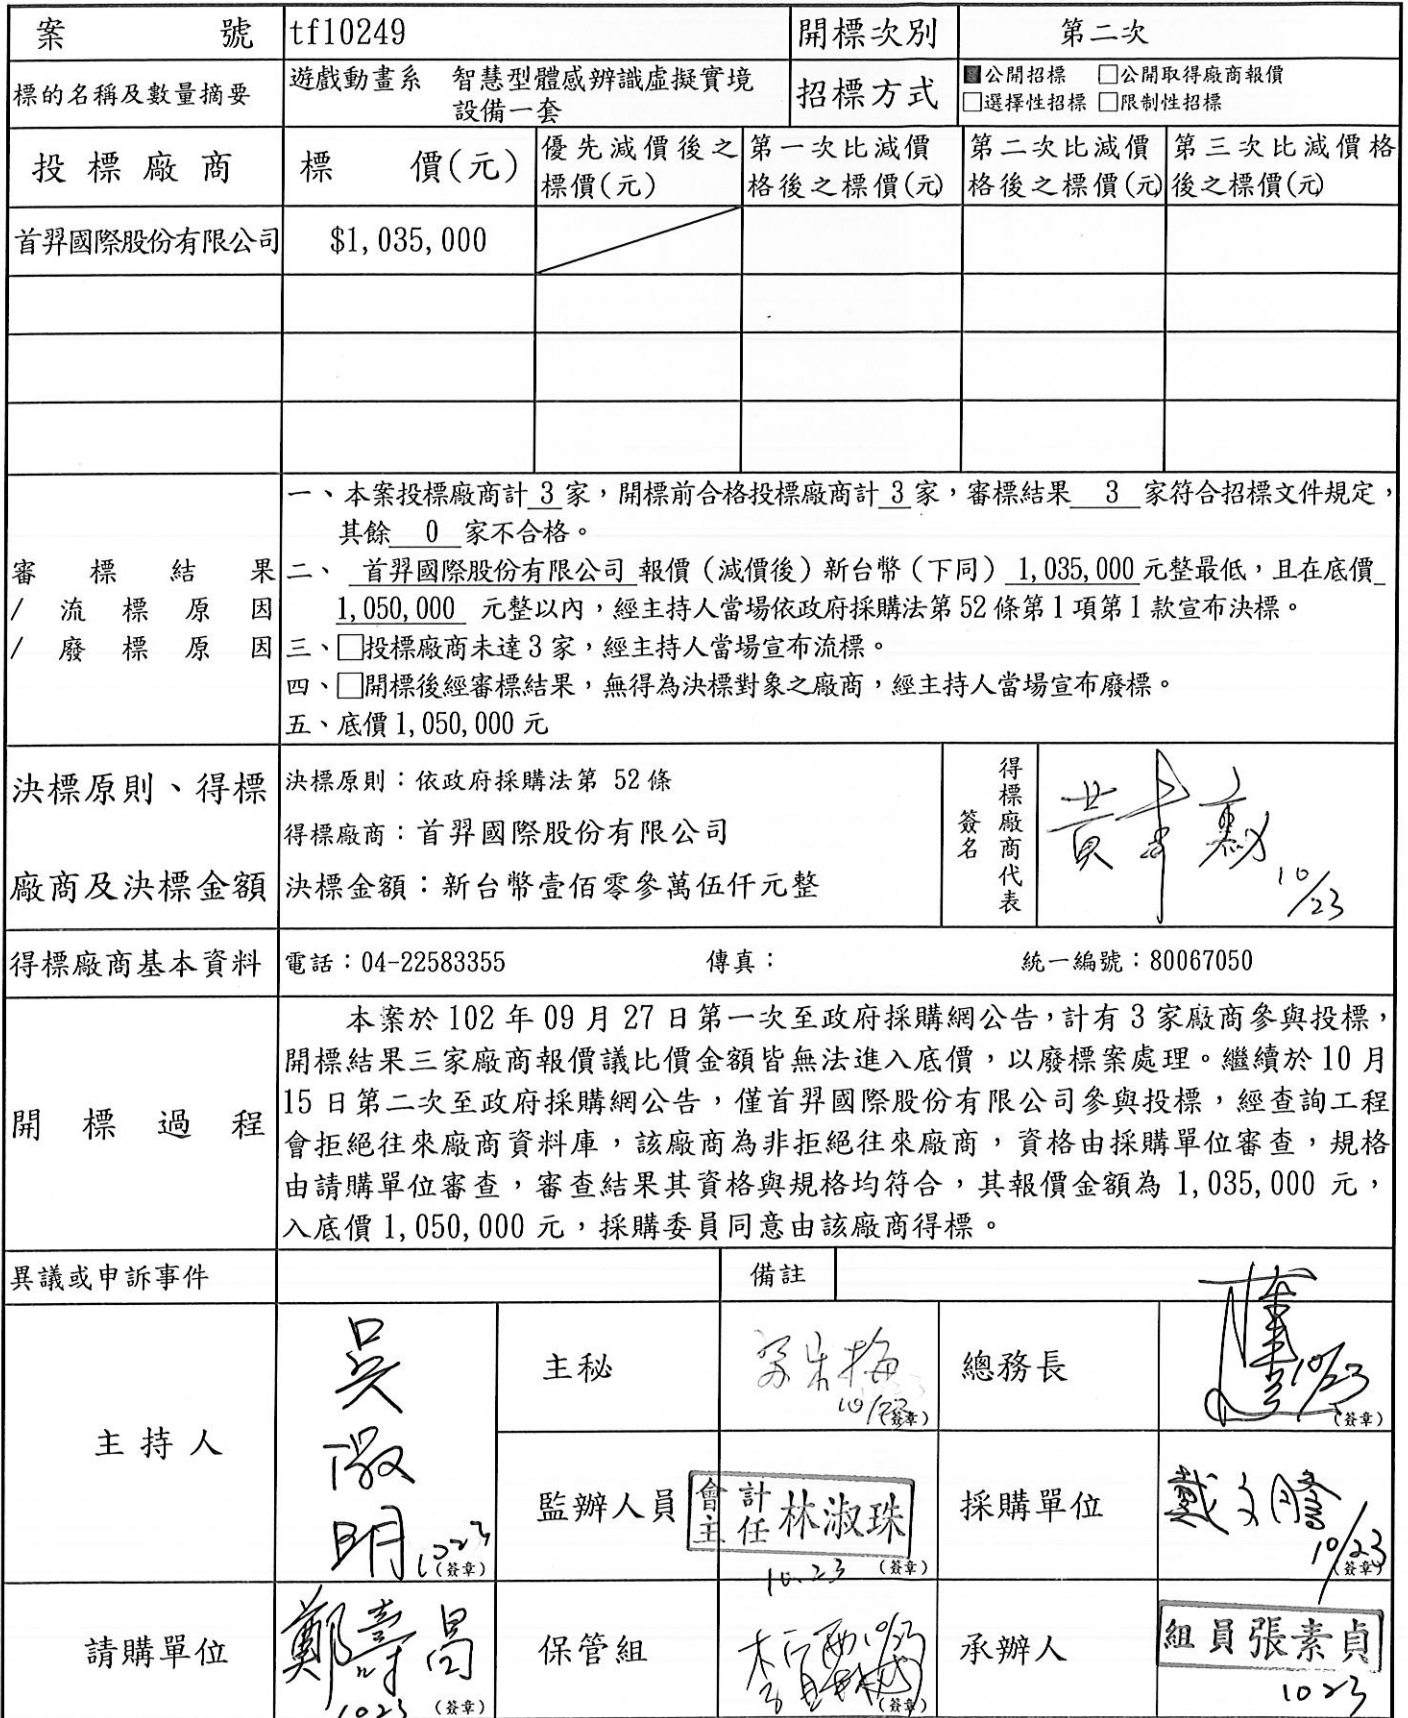 案 號 tf10249 開標次別 第二次
標的名稱及數量摘要 遊戲動畫系 智慧型體感辨識虛擬實境 招標方式 ■公開招標 □公開取得廠商報價
設備一套 □選擇性招標 □限制性招標
投標廠商 標 價(元) 優先減價後之 第一次比減價 第二次比減價 第三次比減價格
標價(元) 格後之標價(元) 格後之標價(元) 後之標價(元)
首羿國際股份有限公司 $1,035,000
審標結果
/流標原因
/廢標原因
一、本案投標廠商計 3 家,開標前合格投標廠商計 3 家,審標結果 3 家符合招標文件規定,
其餘 0 家不合格。
二、 首羿國際股份有限公司 報價(減價後)新台幣(下同) 1,035,000 元整最低,且在底價
1,050,000 元整以內,經主持人當場依政府採購法第52條第1項第1款宣布決標。
三、□投標廠商未達3家,經主持人當場宣布流標。
四、□開標後經審標結果,無得為決標對象之廠商,經主持人當場宣布廢標。
五、底價1,050,000元
決標原則、得標
廠商及決標金額
決標原則:依政府採購法第 52條
得標廠商:首羿國際股份有限公司
決標金額:新台幣壹佰零參萬伍仟元整
得標廠商代表
簽名
10/23
得標廠商基本資料 電話:04-22583355 傳真: 統一編號:80067050
開標過程
本案於102年09月27日第一次至政府採購網公告,計有3家廠商參與投標,
開標結果三家廠商報價議比價金額皆無法進入底價,以廢標案處理。繼續於10月
15日第二次至政府採購網公告,僅首羿國際股份有限公司參與投標,經查詢工程
會拒絕往來廠商資料庫,該廠商為非拒絕往來廠商,資格由採購單位審查,規格
由請購單位審查,審查結果其資格與規格均符合,其報價金額為1,035,000元,
入底價1,050,000元,採購委員同意由該廠商得標。
異議或申訴事件 備註
主持人 吳 明 1023 (簽章)
主秘 10/23 (簽章)
總務長 10/23 (簽章)
監辦人員 會計主任 林淑珠 10.23 (簽章)
採購單位 戴文騰 10/23 (簽章)
請購單位 鄭壽昌 1023 (簽章)
保管組 10/23 (簽章)
承辦人 組員張素貞 1023